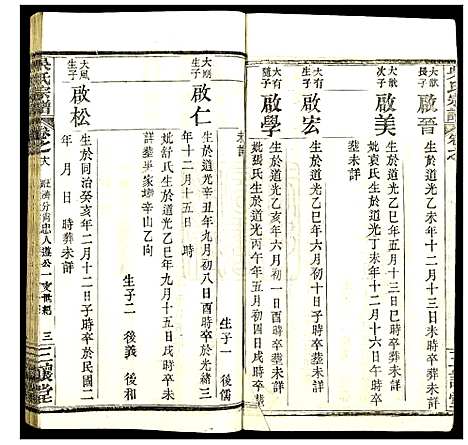 大歆長子 啟晉
生於道光乙未年十一月十三日未時卒未詳
葬未詳
大歆次子 啟美
生於道光乙巳年五月十三日子時卒未詳
妣袁氏生於道光丁未年十二月十六日午時卒
葬未詳
大有生子 啟宏
生於道光乙巳年六月初一日戌時卒未詳
大有隨子 啟學
生於道光乙亥年六月初一日亥時卒未詳
妣張氏生於道光丙午年五月
未詳
大剛生子 啟仁
生子一 後儒
生於道光辛丑年九月初八日酉時卒於光緒三
年十二月十五日 時
妣舒氏生於道光乙巳年九月十五日戌時卒未
詳葬畢家塝辛山乙向
生子二 後義 後和
大風生子 啟松
生於同治癸亥年二月十二日子時卒於民國二
年 月 日 時葬未詳
吳氏宗譜
卷之
三
三讓堂